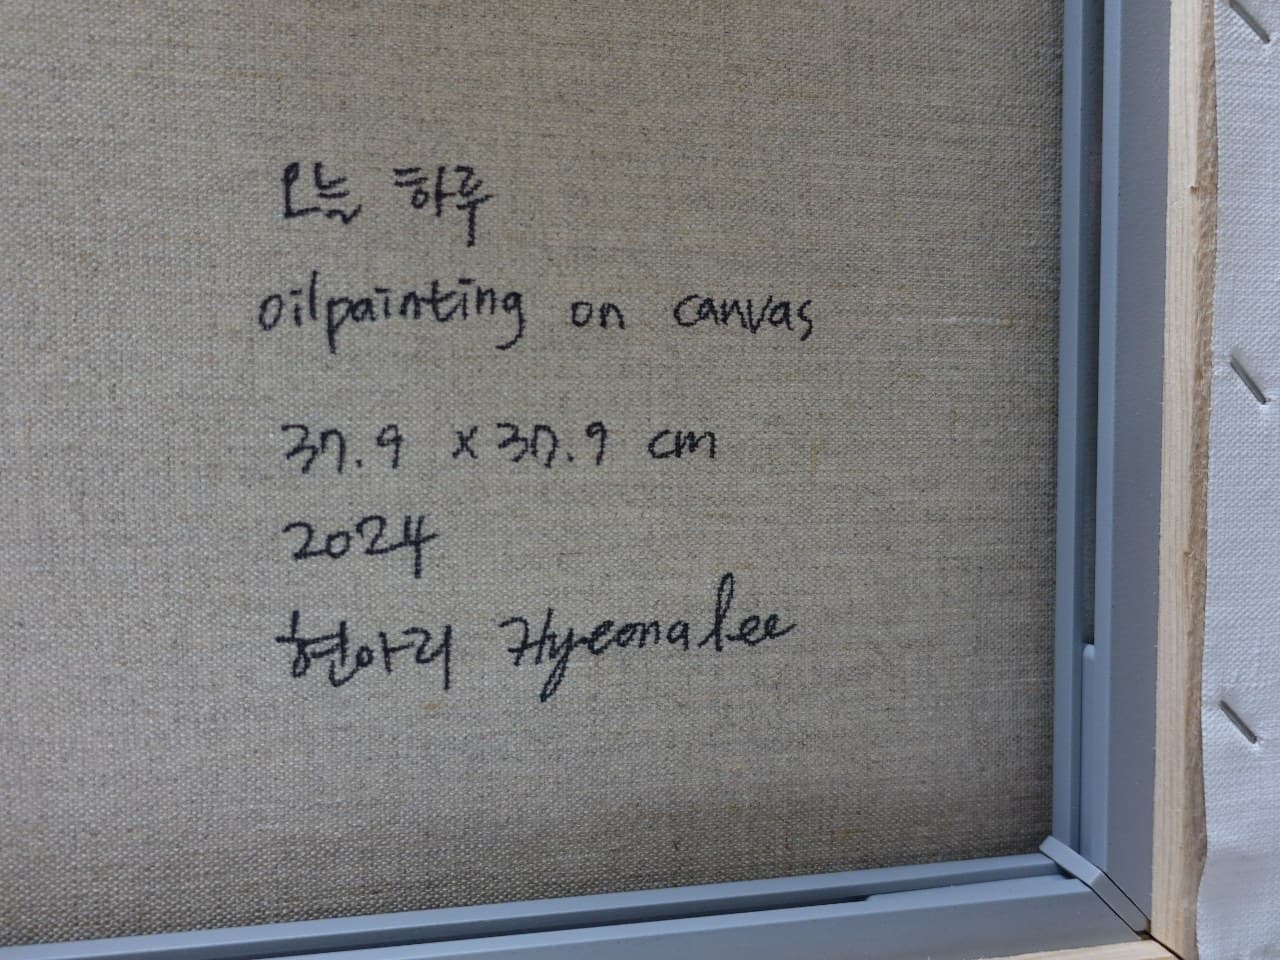 오늘 하루
oilpainting on canvas
37.9 x 37.9 cm
2024
현아리 Hyeonalee